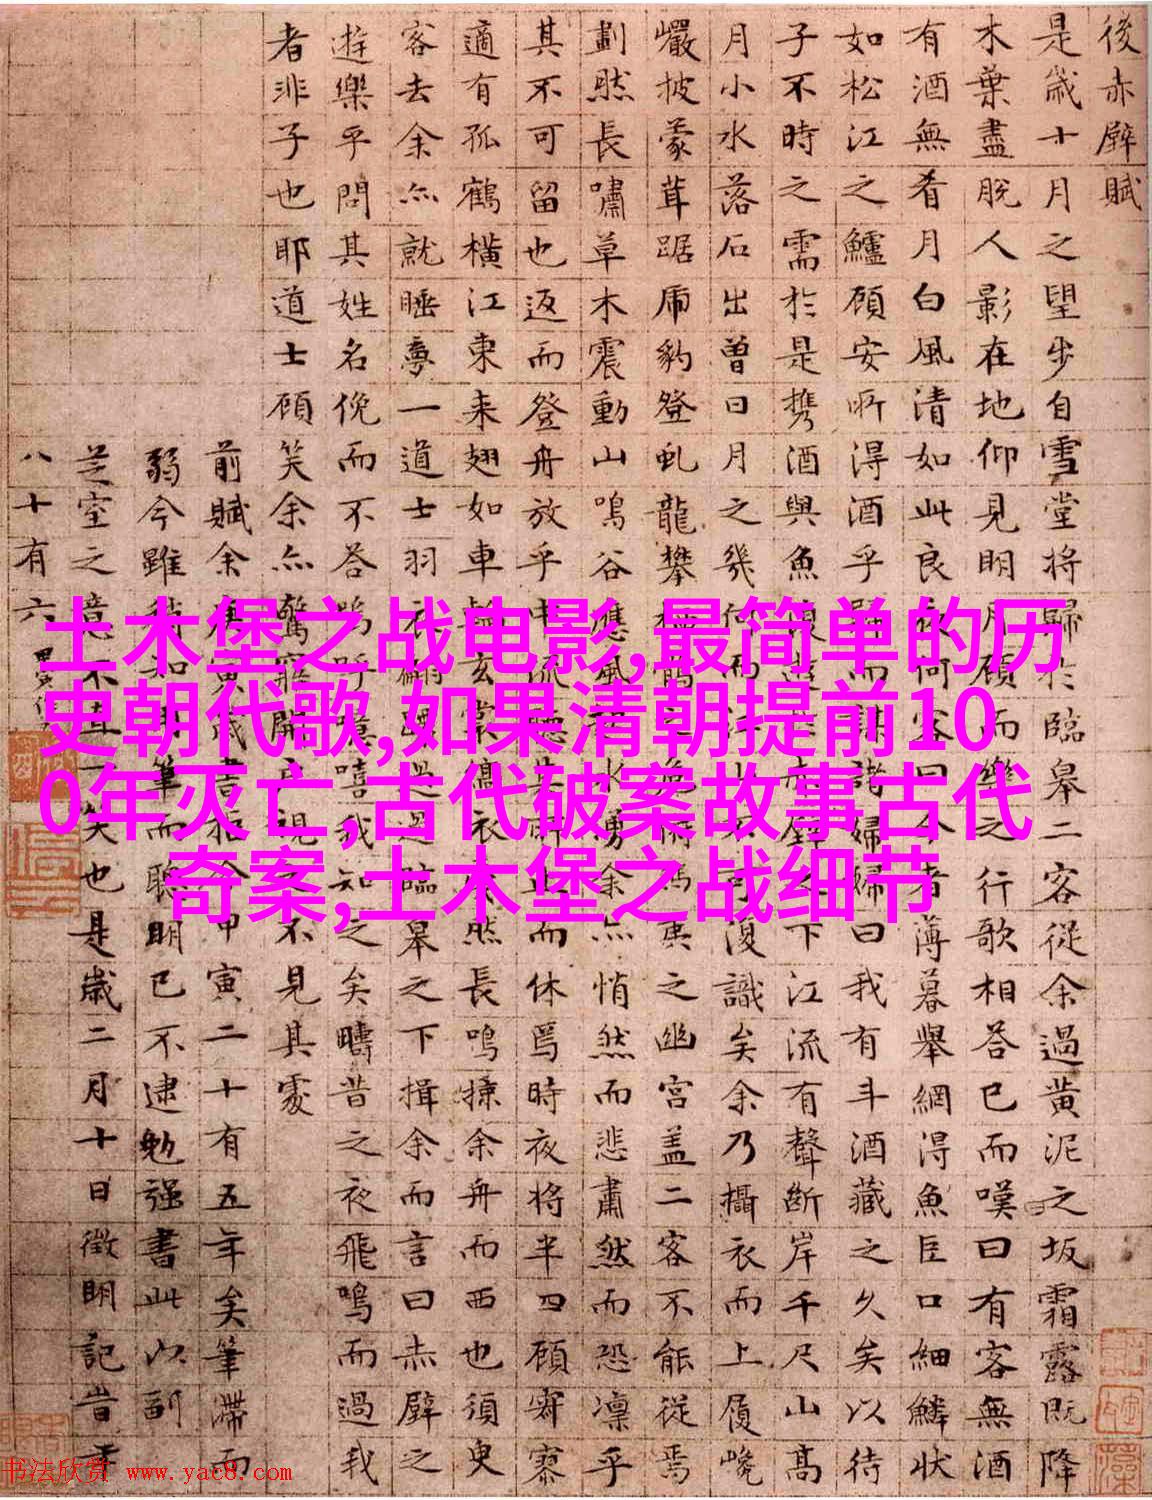 後赤壁賦
是歲十月之望步自雪堂將歸於臨皋二客從余過黃泥之坂霜露既降
木葉盡脫人影在地仰見明月顧而樂之行歌相答已而嘆曰有客無酒
有酒無肴月白風清如此良夜何客曰今者薄暮舉網得魚巨口細鱗狀
如松江之鱸顧安所得酒乎歸而謀諸婦婦曰我有斗酒藏之久矣以待
子不時之需於是攜酒與魚復遊於赤壁之下江流有聲斷岸千尺山高
月小水落石出曾日月之幾何而江山不可復識矣余乃攝衣而上履巉
巖披蒙茸踞虎豹登虬龍攀棲鶻之危俯馮夷之幽宮蓋二客不能從焉
劃然長嘯草木震動山鳴谷應風起水勇余亦悄然而悲肅然而恐凜乎
其不可留也返而登舟放乎中流聽其所止而休焉時夜將半四顧寂寥
適有孤鶴橫江東来翅如車輪玄裳縞衣戛然長鳴掠余舟而西也須臾
客去余亦就睡夢一道士羽衣翩躚過臨皋之下揖余而言曰赤壁之
遊樂乎問其姓名俛而不答嗚呼噫嘻我知之矣疇昔之夜飛鳴而過我
者非子也耶道士顧笑余亦驚寤開戶視之不見其處
前賦余庚寅歲書抵今甲寅二十有五年矣筆滯而
弱今雖稍知用筆而聰明已不逮勉强書此以副
芝室之意不直一笑也是歲二月十日徵明記昔年
八十有六
土木堡之战电影,最简单的历
史朝代歌,如果清朝提前10
0年灭亡,古代破案故事古代
奇案,土木堡之战细节
书法欣赏 www.yac8.com